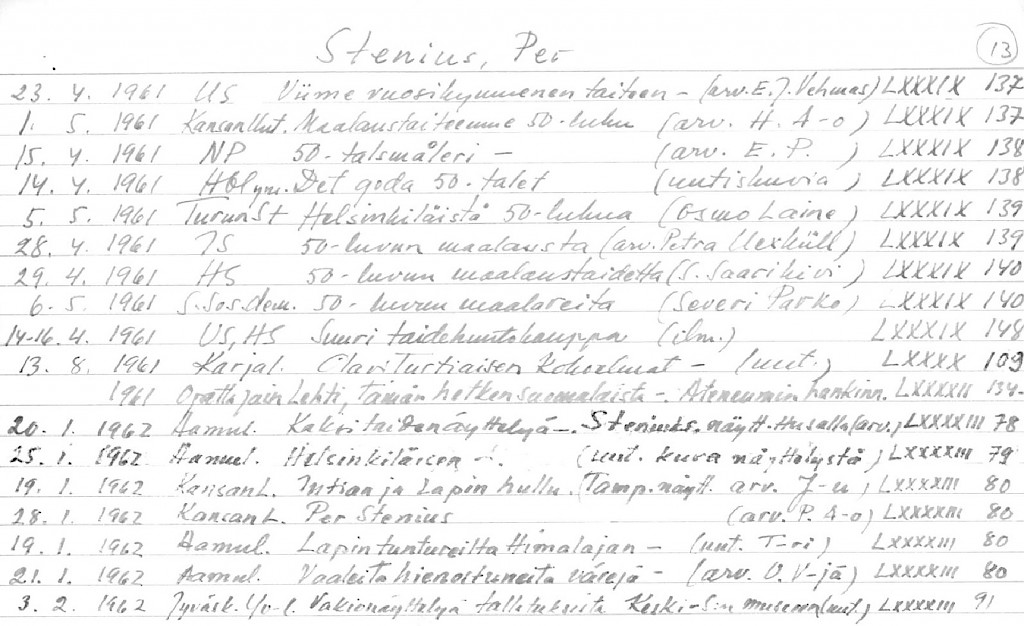 Stenius, Per 13
23. 4. 1961 US Viime vuosikymmenen taiteen - (arv. E. J. Vehmas) LXXXIX 137
1. 5. 1961 Kansan Uut. Maalaustaiteemme 50-luku (arv. H. A-o) LXXXIX 137
15. 4. 1961 NP 50-talsmåleri - (arv. E. P. ) LXXXIX 138
14. 4. 1961 Hbl ym. Det goda 50-talet (uutiskuvia ) LXXXIX 138
5. 5. 1961 TurunSt Helsinkiläistä 50-lukua (Osmo Laine) LXXXIX 139
28. 4. 1961 IS 50-luvun maalausta (arv. Petra Uexküll) LXXXIX 139
29. 4. 1961 HS 50-luvun maalaustaidetta (S. Saarikivi ) LXXXIX 140
6. 5. 1961 S. Sos.dem. 50-luvun maalareita (Severi Parko) LXXXIX 140
14-16. 4. 1961 US, HS Suuri taidehuutokauppa (ilm.) LXXXIX 148
13. 8. 1961 Karjal. Olavi Turtiaisen Kokoelmat - (uut.) LXXXX 109
1961 Lehti, tämän hetken suomalaista - Ateneumin hankinn. LXXXXII 134-
20. 1. 1962 Aamul. Kaksi taidenäyttelyä - Stenius. näytt. (arv.) LXXXXIII 78
25. 1. 1962 Aamul. Helsinkiläisen - (uut. kuva näyttelystä ) LXXXXIII 79
19. 1. 1962 Kansan L. Intian ja Lapin hullu. (Tamp. näytt. arv. J-u) LXXXXIII 80
28. 1. 1962 Kansan L. Per Stenius (arv. P. A-o) LXXXXIII 80
19. 1. 1962 Aamul. Lapin tuntureilta Himalajan - (uut. T-ri) LXXXXIII 80
21. 1. 1962 Aamul. Vaaleita hienostuneita värejä - (arv. O. V-jä) LXXXXIII 80
3. 2. 1962 Jyväsk. Yo-l. Vakionäyttelyä talletuksista Keski-S:n museoon (uut.) LXXXXIII 91